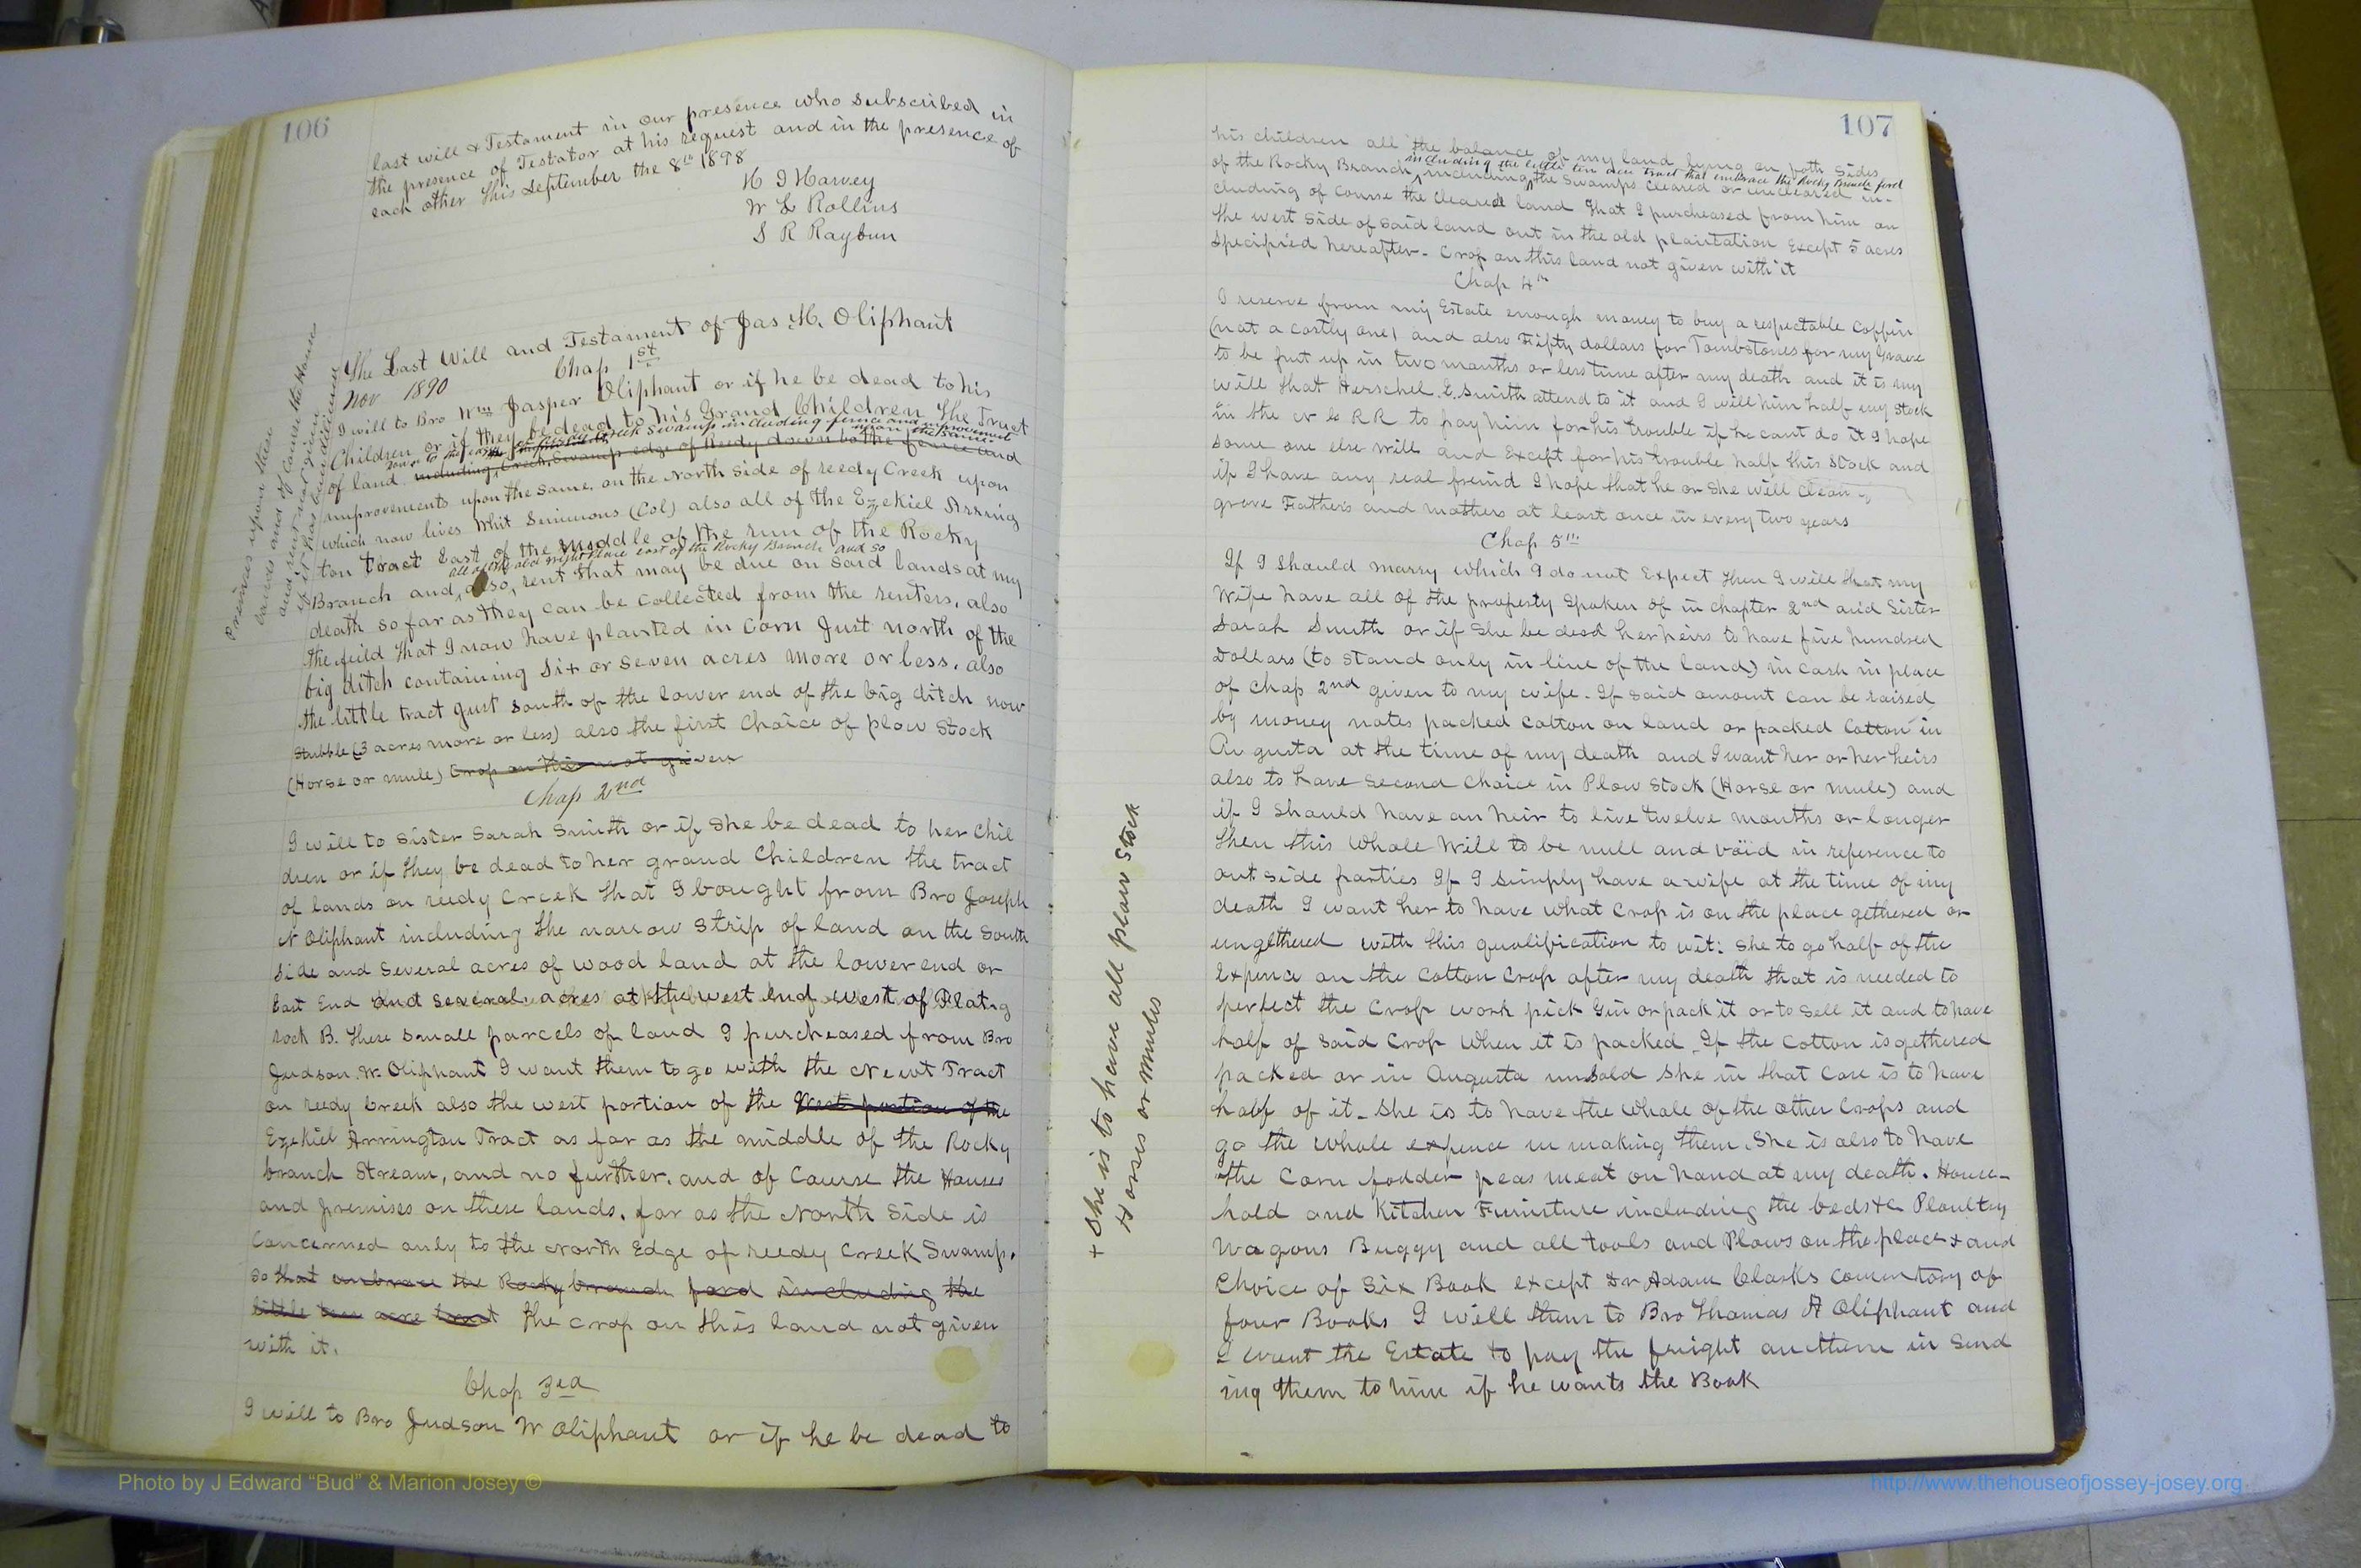 106
last will & Testament in our presence who subscribed in
the presence of Testator at his request and in the presence of
each other This September the 8th 1898
H I Harvey
W L Rollins
S R Raybun
The Last Will and Testament of Jas H. Oliphant
Nov 1890 Chap 1st
I will to Bro Wm Jasper Oliphant or if he be dead to his
Children or if they be dead to his Grand Children the Tract
of land including Creek Swamp edge of Reedy down to the fence and
improvements upon the same, on the North Side of reedy Creek upon
which now lives Whit Simmons (Col) also all of the Ezekiel Arring
ton Tract East of the middle of the run of the Rocky
all of the old Wright place east of the Rocky Branch and so
Branch and, also, rent that may be due on said lands at my
death so far as they can be collected from the renters, also
the feild that I now have planted in Corn Just north of the
big ditch containing Six or Seven acres more or less, also
the little tract Just South of the lower end of the big ditch now
Stubble (3 acres more or less) also the first Choice of plow Stock
(Horse or mule) Crop on this not given
Premises upon these
lands and of Course the House
and rent not given
if it has been
Chap 2nd
I will to Sister Sarah Smith or if She be dead to her Chil
dren or if they be dead to her grand Children the tract
of lands on reedy Creek that I bought from Bro Joseph
N Oliphant including the narrow Strip of land on the South
Side and Several acres of wood land at the lower end or
East End and several acres at the west end west of Flat
rock B. These small parcels of land I purcheased from Bro
Judson W. Oliphant I want them to go with the Newt Tract
on reedy Creek also the west portion of the West portion of the
Ezekiel Arrington Tract as far as the middle of the Rocky
branch Stream, and no further, and of Course the Houses
and premises on these lands, far as the North Side is
Concerned only to the North Edge of reedy Creek Swamp.
So that embrace the Rocky branch ford including the
little ten acre tract the crop on this land not given
with it.
Chap 3rd
I will to Bro Judson W Oliphant or if he be dead to
107
his children all the balance of my land lying on both Sides
including the little ten acre tract that embrace the Rocky Branch ford
of the Rocky Branch, including the Swamps cleared or uncleared in-
cluding of Course the Cleared land that I purcheased from him on
the west Side of said land out in the old plantation Except 5 acres
Specified hereafter - Crop on this land not given with it
Chap 4th
I reserve from my Estate enough money to buy a respectable Coffin
(not a costly one) and also Fifty dollars for Tombstones for my Grave
to be put up in two months or less time after my death and it is my
will that Herschel E. Smith attend to it and I will him half my Stock
in the RR to pay him for his trouble if he cant do it I hope
some one else will and Except for his trouble half this Stock and
if I have any real freind I hope that he or she will clean
grave Fathers and mothers at least once in every two years
Chap 5th
If I should marry which I do not Expect then I will that my
Wife have all of the property Spoken of in Chapter 2nd and Sister
Sarah Smith or if she be dead her heirs to have five hundred
Dollars (to stand only in line of the land) in Cash in place
of Chap 2nd given to my wife - If said amount can be raised
by money notes packed Cotton on land or packed Cotton in
Augusta at the time of my death and I want her or her heirs
also to have Second Choice in Plow Stock (Horse or mule) and
if I should have an heir to live twelve months or longer
then this whole Will to be null and void in reference to
out side parties If I simply have a wife at the time of my
death I want her to have what Crop is on the place gethered or
ungethered with this qualification to wit: She to go half of the
Expence on the Cotton Crop after my death that is needed to
perfect the Crop work pick Gin or pack it or to Sell it and to have
half of Said Crop when it is packed - If the Cotton is gethered
packed or in Augusta unsold She in that Case is to have
half of it - She is to have the whole of the other Crops and
go the whole expence in making them. She is also to have
the Corn fodder peas meat on hand at my death. House-
hold and Kitchen Furniture including the beds &c Ploultry
Wagons Buggy and all tools and Plows on the place + and
Choice of Six Book except Dr Adam Clarks Comentory of
four Books I will them to Bro Thomas A Oliphant and
I want the Estate to pay the freight on them in Send
ing them to him if he wants the Book
+ She is to have all plow Stock
Horses or mules
Photo by J Edward "Bud" & Marion Josey ©
http://www.thehouseofjossey-josey.org